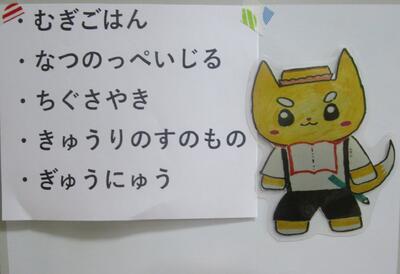 ・むぎごはん
・なつのっぺいじる
・ちぐさやき
・きゅうりのすのもの
・ぎゅうにゅう